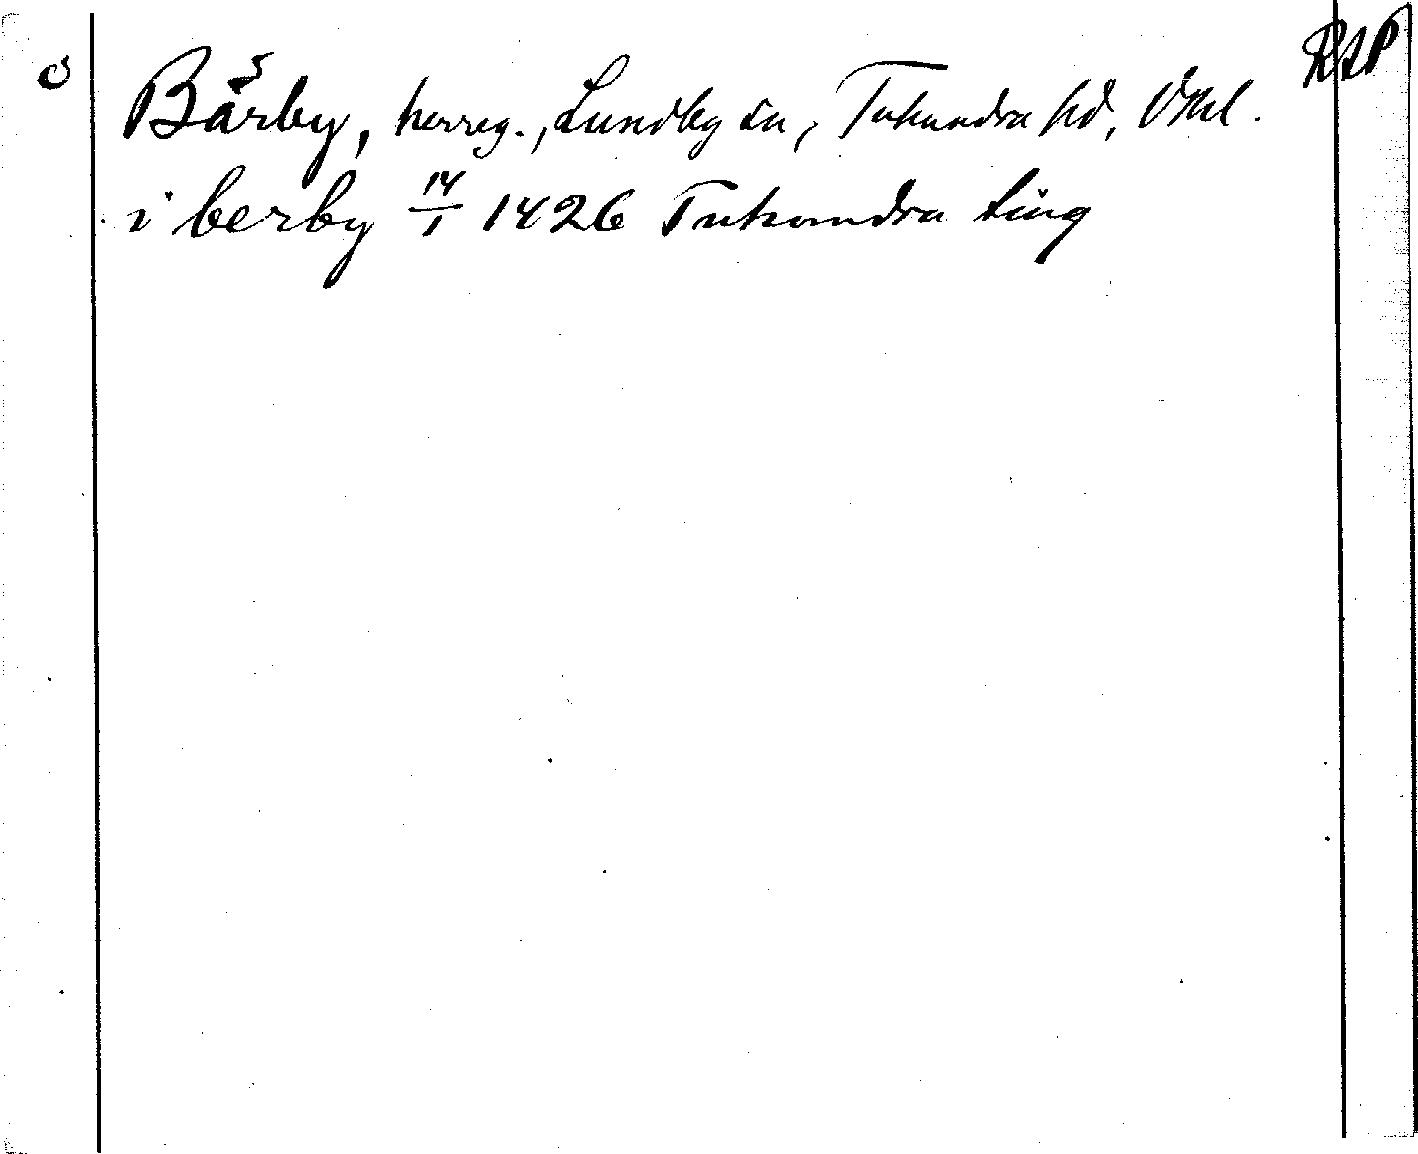 RAP
Bärby, herreg., Lundby sn, Tuhundra hd, Vml.
i berby 14/1 1426 Tuhundra ting